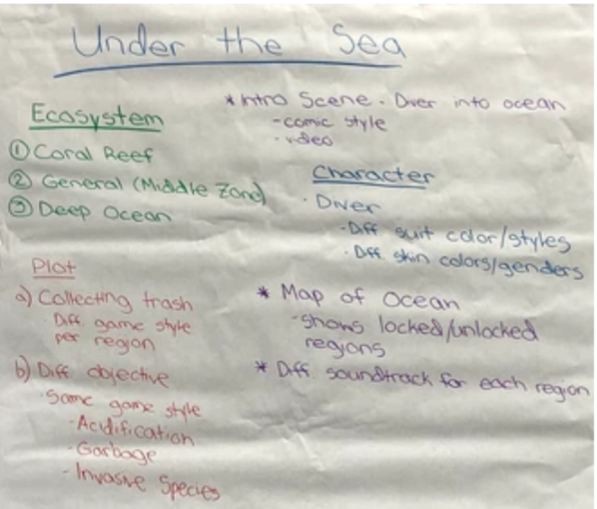 Under the Sea
Ecosystem
① Coral Reef
② General (Middle Zone)
③ Deep Ocean
* Intro Scene - Diver into ocean
- comic style
- video
Character
· Diver
· Diff suit color/styles
· Diff skin colors/genders
Plot
a) Collecting trash
· Diff. game style
per region
b) Diff objective
· Same game style
- Acidification
- Garbage
- Invasive Species
* Map of Ocean
- shows locked/unlocked
regions
* Diff. soundtrack for each region